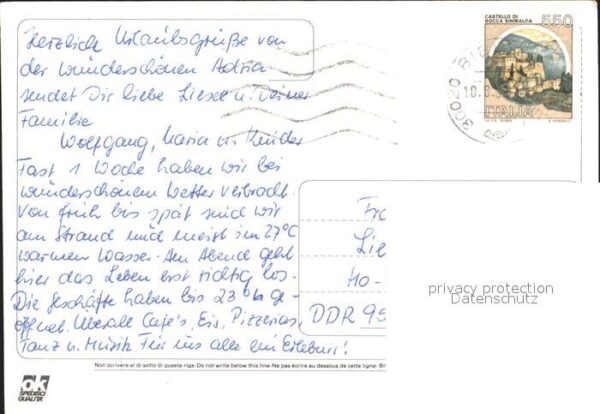 Herzliche Urlaubsgrüße von
der wunderschönen Adria
sendet Dir liebe Liesel u. Deiner
Familie
Wolfgang, Maria u. Kinder
Fast 1 Woche haben wir bei
wunderschönem Wetter verbracht.
Von früh bis spät sind wir
am Strand und meist im 27°C
warmen Wasser. Am Abend geht
hier das Leben erst richtig los.
Die Geschäfte haben bis 23 Uhr ge-
öffnet. Überall Cafe's, Eis, Pizzerias,
Tanz u. Musik. Für uns alle ein Erlebnis!
CASTELLO DI
ROCCA SINIBALDA
550
ITALIA
30020
Fr
Lie
Ho-
DDR 95
privacy protection
Datenschutz
Non scrivere al di sotto di questa riga-Do not write below this line-Ne pas écrire au dessous de cette ligne-Bi
ok
SPEDISCI
QUALITA'